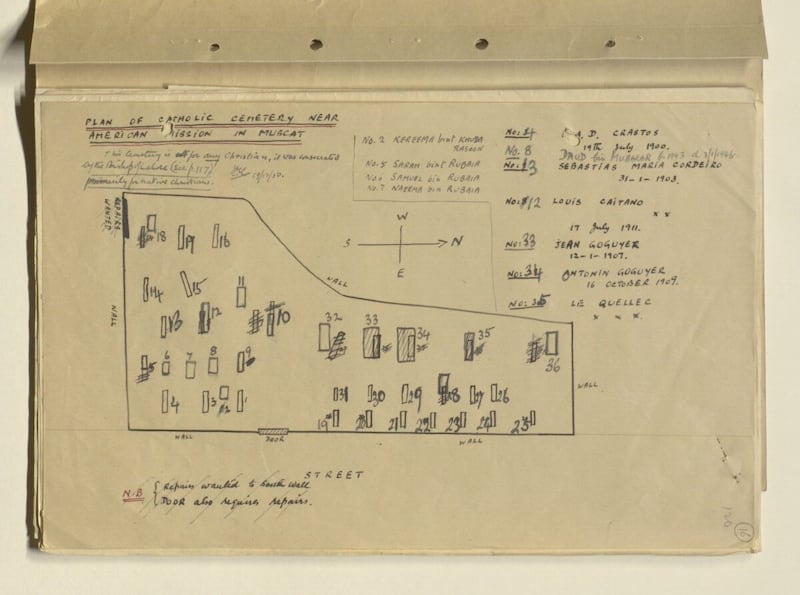 PLAN OF CATHOLIC CEMETERY NEAR
AMERICAN MISSION IN MUSCAT
This Cemetery is for any Christian, it was consecrated
by the Bishop (See p. 117)
primarily for native christians.
No. 2 KEREEMA bint
RASOON
No. 5 SARAH bint RUBAIA
No 6 SAMUEL bin RUBAIA
No. 7 NAEEMA bin RUBAIA
D. CRASTOS
19th July 1900.
No. 8 DAUD bin MUBARAK b. 1943 d.
No: 13 SEBASTIAS MARIA CORDEIRO
31-1-1903.
No: 12 LOUIS CAITANO
x x
17 July 1911.
No: 33 JEAN GOGUYER
12-1-1907.
No: 34 ANTONIN GOGUYER
16 OCTOBER 1909.
No: 35 LE QUELLEC
x x x.
W
S N
E
REPAIRS
WANTED
WALL
WALL
18 17 16
14 15 11
13 12 10
5 6 7 8 9
4 3 2 1
32 33 34 35
36
31 30 29 28 27 26
19 20 21 22 23 24 25
WALL
WALL DOOR WALL
STREET
N.B { Repairs wanted to South Wall
DOOR also requires repairs.
120
16